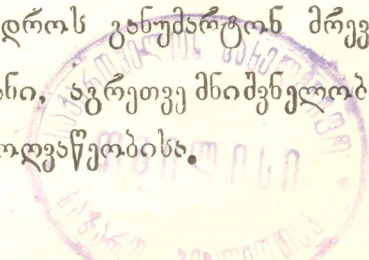 დროს განუმარტონ მრევ
ნი, აგრეთვე მნიშვნელობ
ოღვაწეობისა.
თბილისი